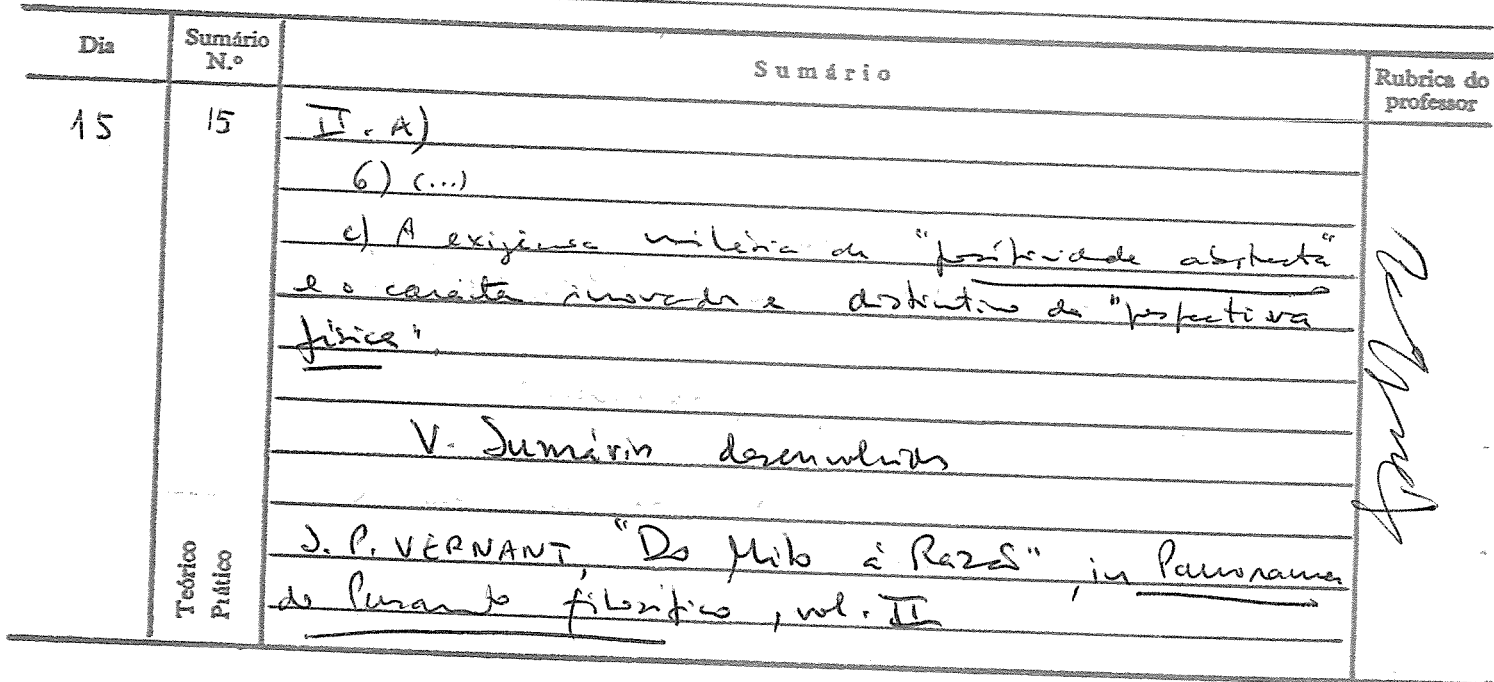 Dia
Sumário N.º
Sumário
Rubrica do professor
15
15
II. A)
6) (...)
c) A exigência milésia de "positividade abstracta"
e o carácter inovador e distintivo da "perspectiva
física".
V. Sumário desenvolvido
Teórico
Prático
J. P. VERNANT, "Do Mito à Razão", in Panorama
do Pensamento filosófico, vol. II